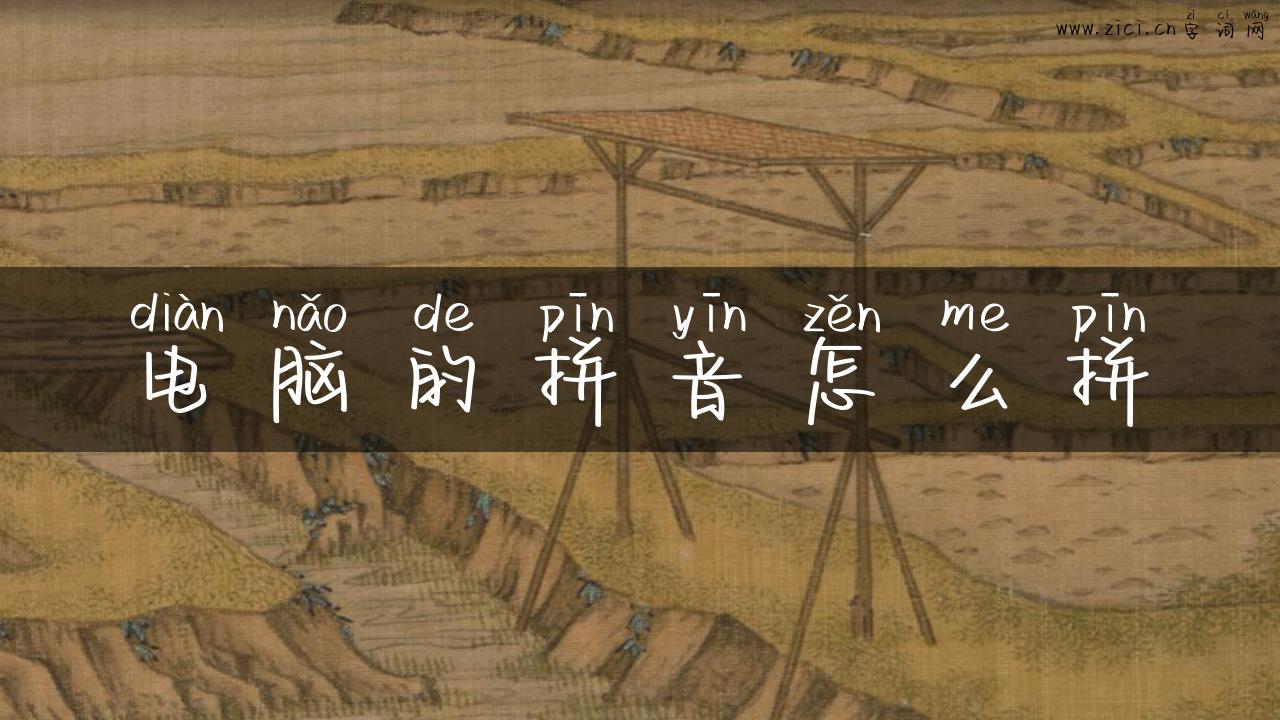 zì cí wǎng
www.zici.cn 字词网
diàn nǎo de pīn yīn zěn me pīn
电脑的拼音怎么拼